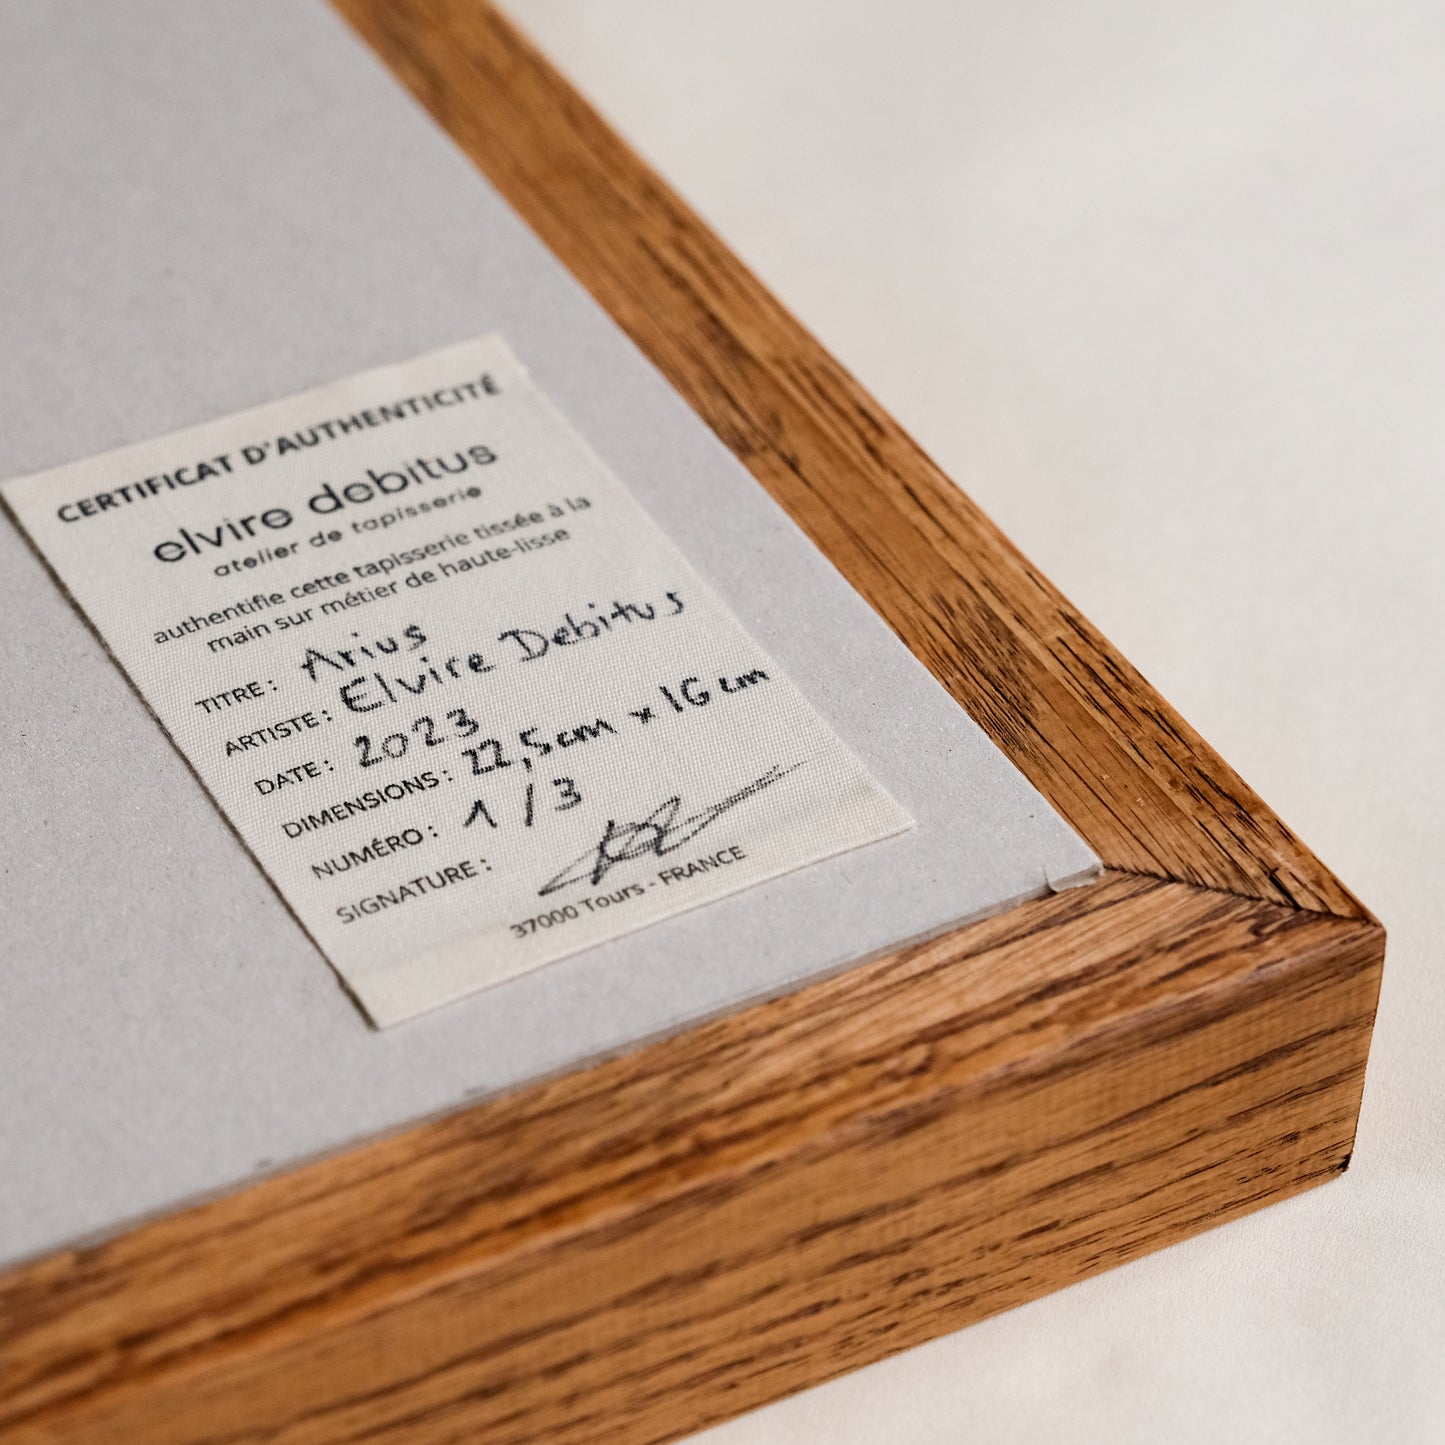 CERTIFICAT D'AUTHENTICITÉ
elvire debitus
atelier de tapisserie
authentifie cette tapisserie tissée à la
main sur métier de haute-lisse
TITRE : Arius
ARTISTE : Elvire Debitus
DATE : 2023
DIMENSIONS : 22,5cm x 16 cm
NUMÉRO : 1/3
SIGNATURE :
37000 Tours - FRANCE